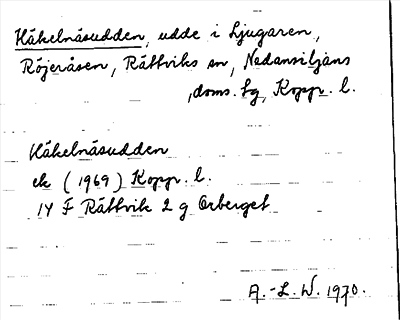 Håkelnäsudden, udde i Ljugaren,
Röjeråsen, Rättviks sn, Nedansiljans
doms. hg, Kopp. l.
Håkelnäsudden
ek (1969) Kopp. l.
14 F Rättvik 2 g Orberget
A.-L. W. 1970.